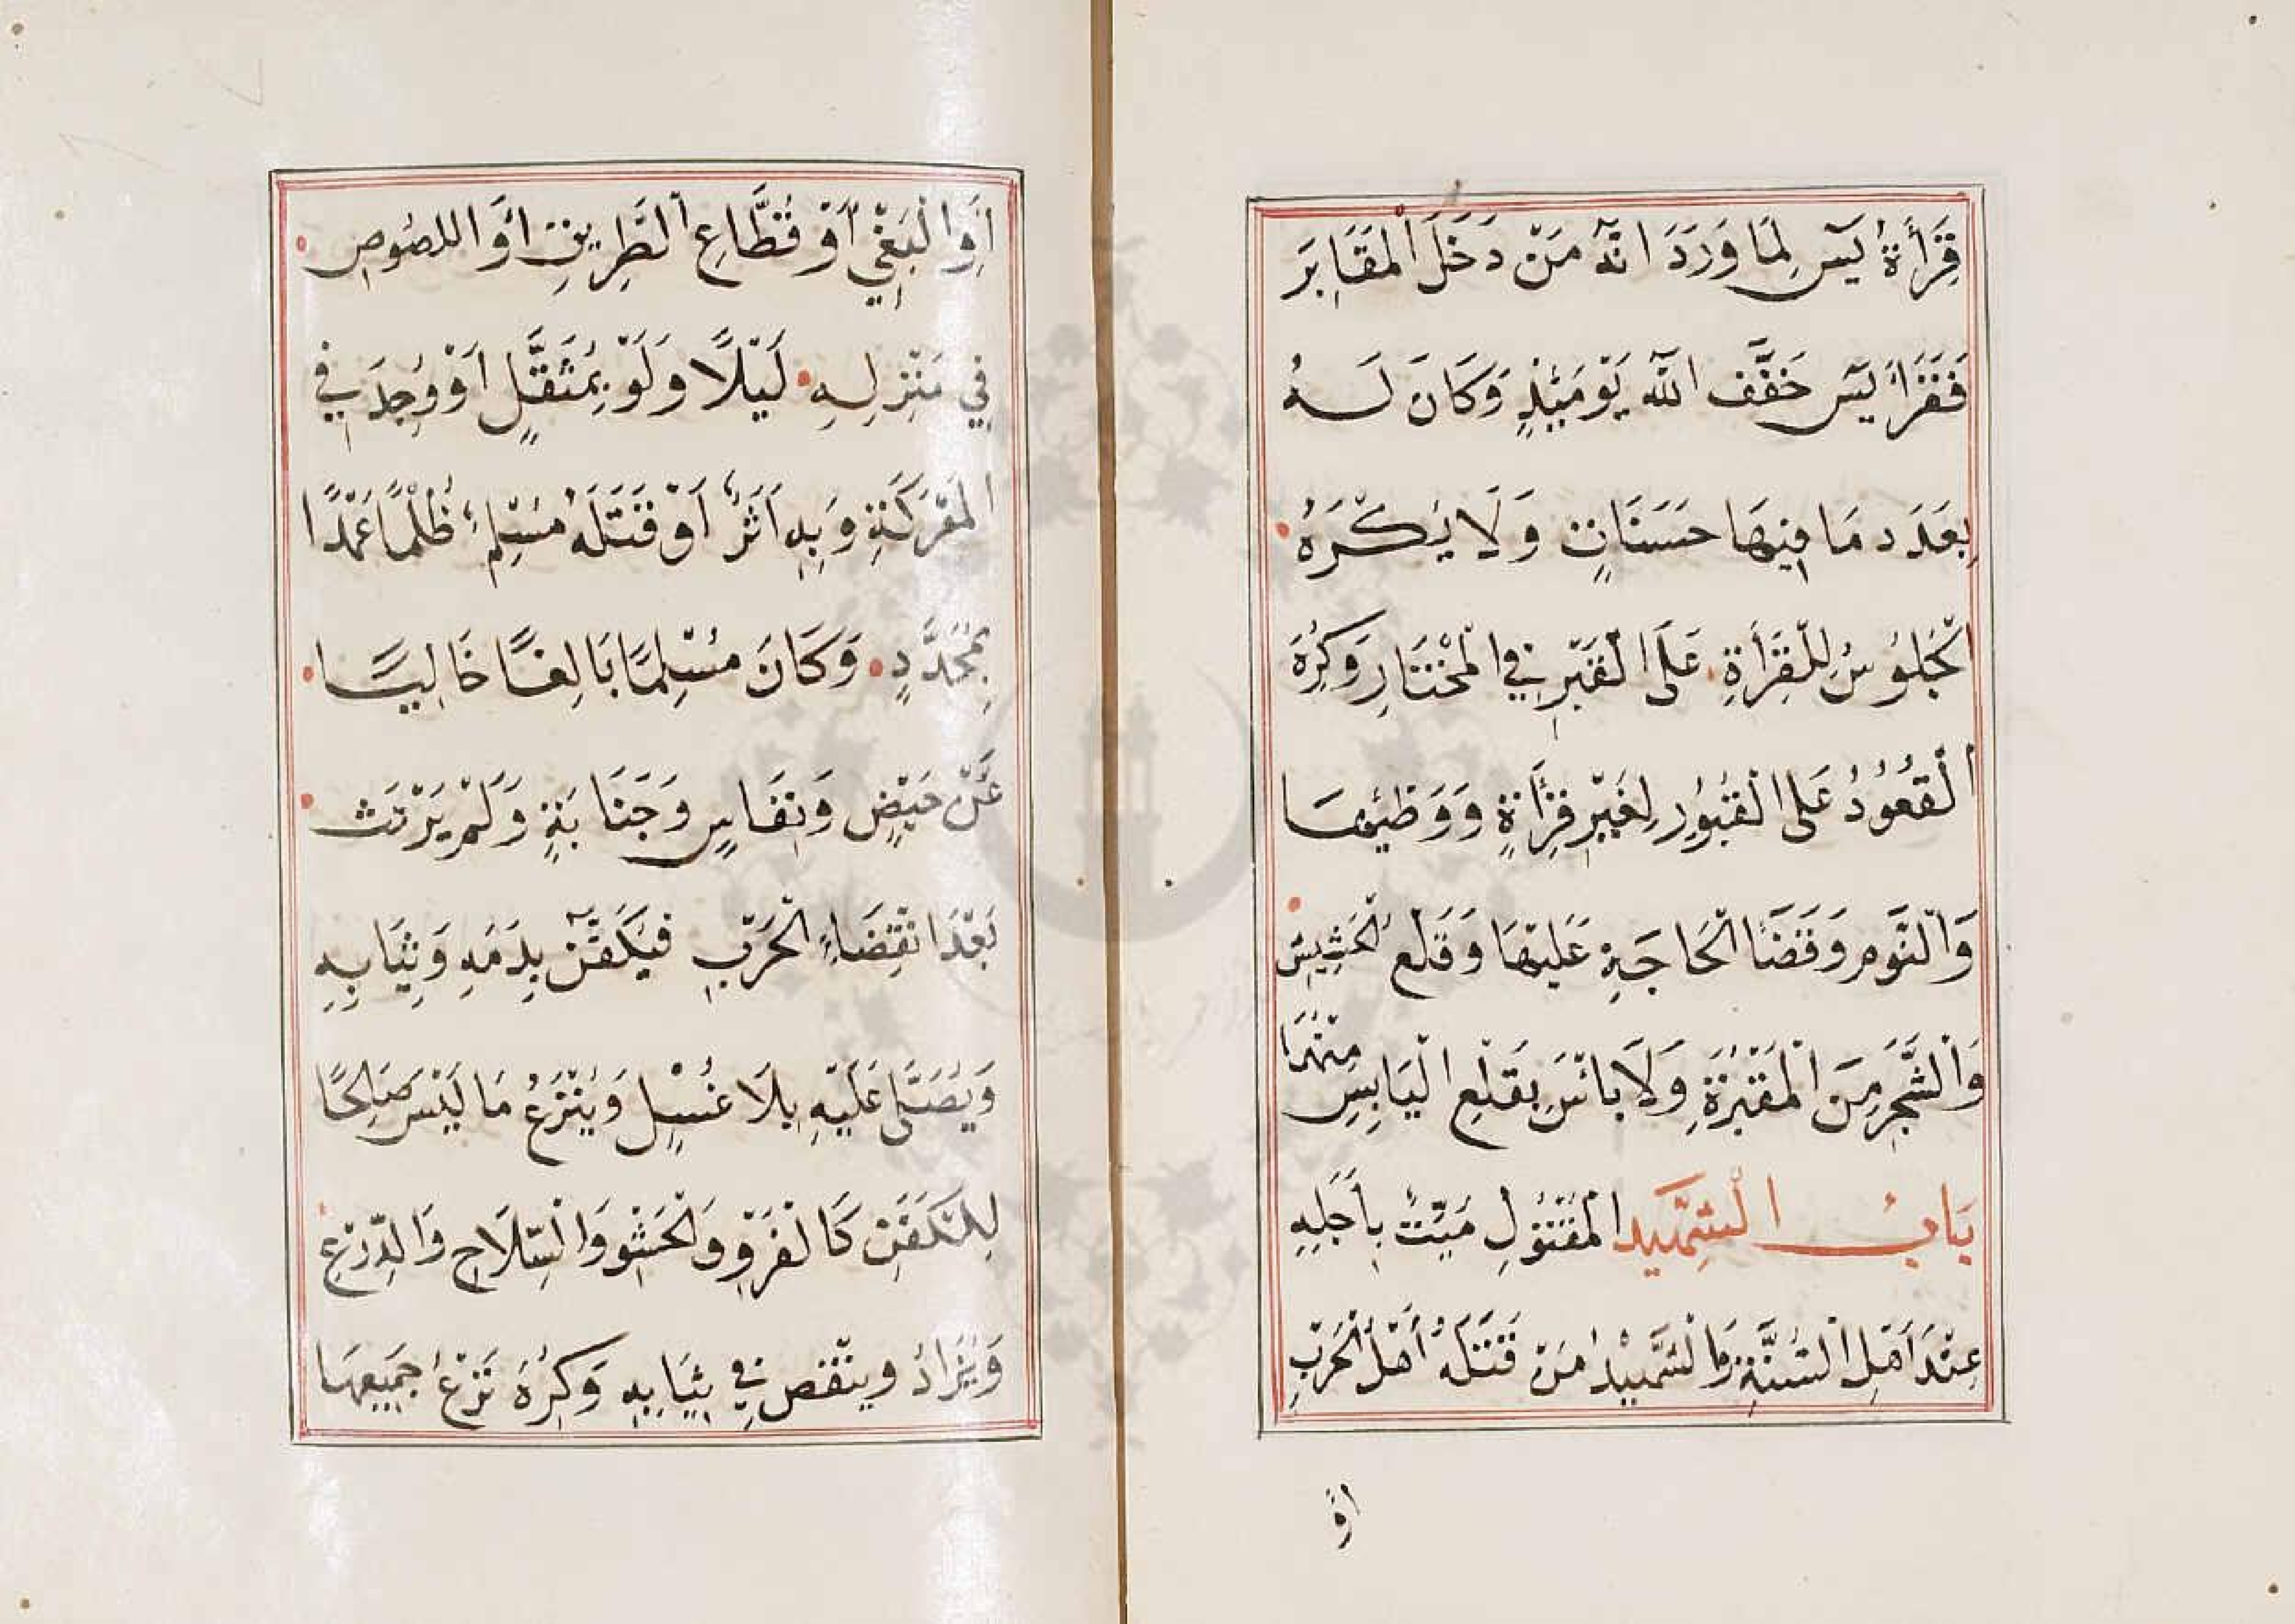 قِرَأَةُ يٓس لِمَا وَرَدَ انَّهُ مَنْ دَخَلَ الْمَقَابِرَ
فَقَرَأَ يٓس خَفَّفَ اللّٰهُ يَوْمَئِذٍ وَكَانَ لَـهُ
بِعَدَدِ مَا فِيهَا حَسَنَاتٍ وَلَا يُكْرَهُ
الْجُلُوسُ لِلْقِرَأَةِ عَلَى الْقَبْرِ فِي الْمُخْتَارِ وَكُرِهَ
الْقُعُودُ عَلَى الْقُبُورِ لِغَيْرِ قِرَأَةٍ وَوَطْئِهَا
وَالنَّوْمِ وَقَضَا الْحَاجَةِ عَلَيْهَا وَقَلْعُ الْحَشِيشِ
وَالشَّجَرِ مِنَ الْمَقْبَرَةِ وَلَا بَأْسَ بِقَلْعِ الْيَابِسِ مِنْهُمَا
بَابُ الشَّهِيدِ الْمَقْتُولِ مَيِّتٌ بِأَجَلِهِ
عِنْدَ اَهْلِ السُّنَّةِ وَالشَّهِيدُ مَنْ قَتَلَهُ أَهْلُ الْحَرْبِ
اَوْ
اَوِ الْبَغْيِ اَوْ قُطَّاعِ الطَّرِيقِ اَوْ اللصُوصِ
فِي مَنْزِلِهِ لَيْلًا وَلَوْ بِمُثَقَّلٍ اَوْ وُجِدَ فِي
الْمَعْرَكَةِ وَبِهِ اَثَرٌ اَوْ قَتَلَهُ مُسْلِمٌ ظُلْمًا عَمْدًا
بِمُحَدَّدٍ وَكَانَ مُسْلِمًا بَالِغًا خَالِيًـا
عَنْ حَيْضٍ وَنِفَاسٍ وَجَنَابَةٍ وَلَمْ يَرْتَث
بَعْدَ انْقِضَاءِ الْحَرْبِ فَيُكَفَّنُ بِدَمِهِ وَثِيَابِهِ
وَيُصَلَّى عَلَيْهِ بِلَا غُسْلٍ وَيُنْزَعُ مَا لَيْسَ صَالِحًا
لِلْكَفَنِ كَالْفَرْوِ وَالْحَشْوِ وَالسِّلَاحِ وَالدِّرْعِ
وَيُزَادُ وَيَنْقُصُ فِي ثِيَابِهِ وَكُرِهَ نَزْعُ جَمِيعِهَا